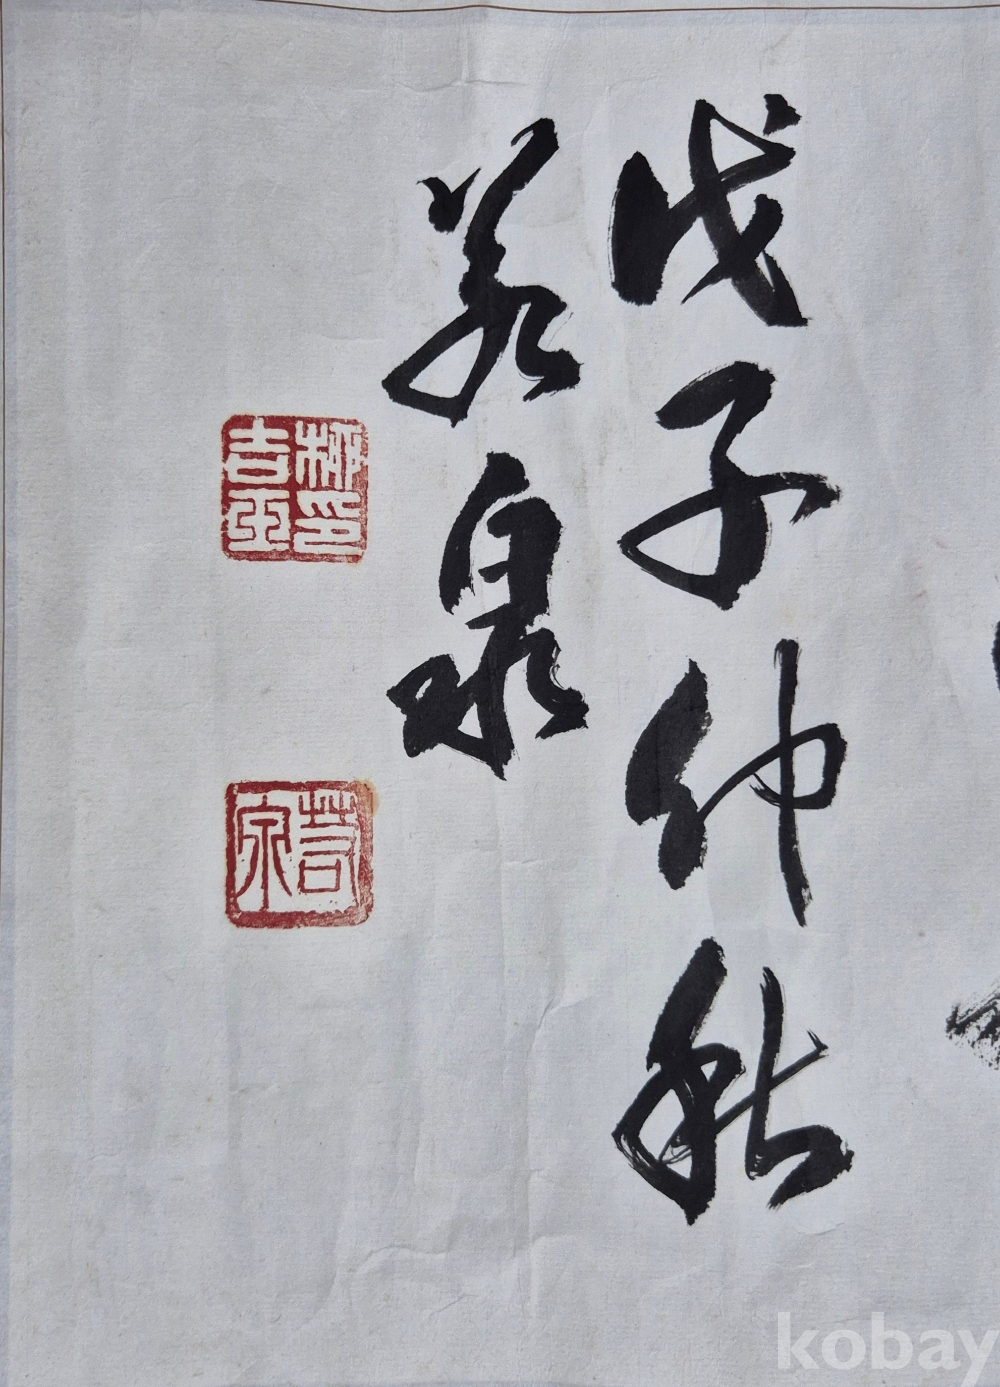 戊子仲秋
若泉
柳印吉
若泉
kobay